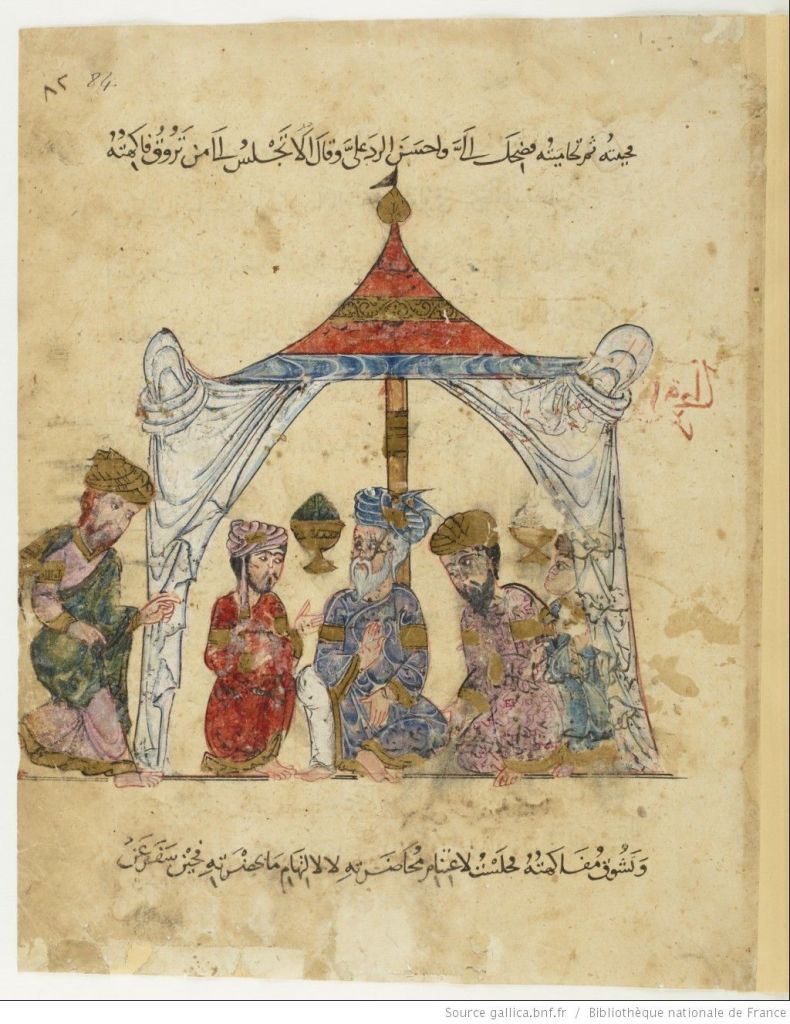 ٨٢ 84.
فحييته ثم تحاميته فضحك إليّ واحسن الرد عليّ وقال الا تجلس إلى من تروق فاكهته
وتشوق مفاكهته فجلست لاغتنام محاضرته لا لالتهام ما بحضرته فحين سفر عن
Source gallica.bnf.fr / Bibliothèque nationale de France